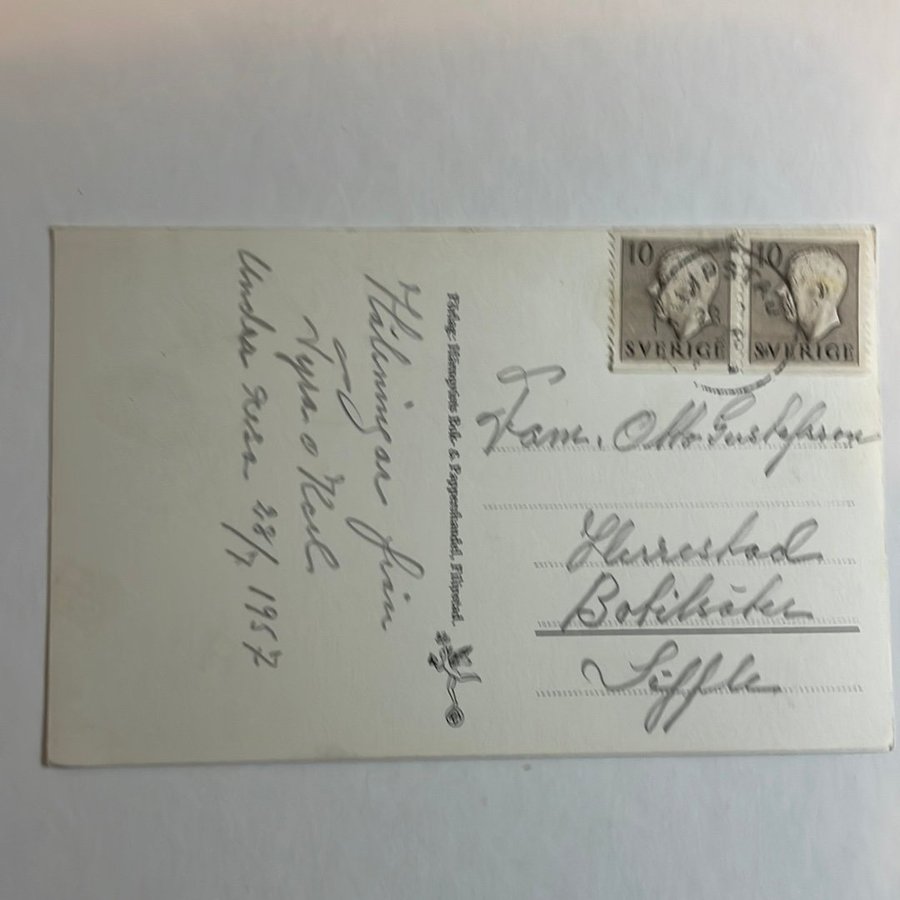 Hälningar från
Tyra o Karl
Under resa 28/7 1957
Förlag: Hammarlöfs Bok- & Pappershandel, Filipstad.
10 10
SVERIGE SVERIGE
Fam. Otto Gustafsson
Herrestad
Säffle